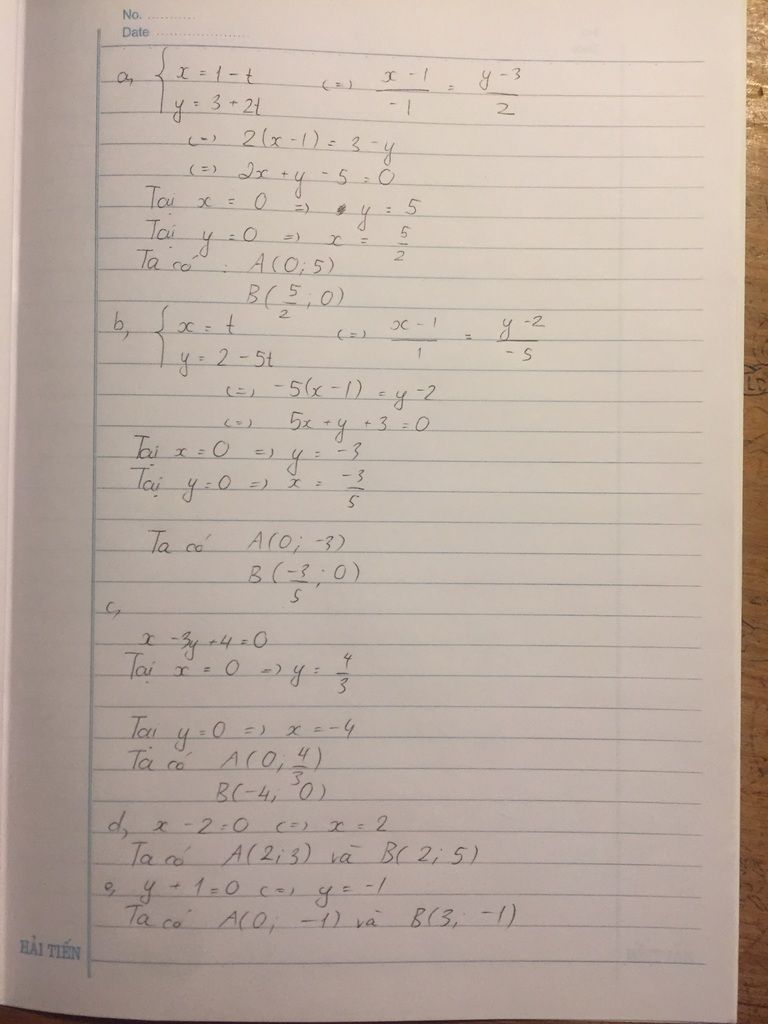 No. ............
Date .........................
a, { x = 1 - t (=) x - 1 / -1 = y - 3 / 2
y = 3 + 2t
(=) 2(x - 1) = 3 - y
(=) 2x + y - 5 = 0
Tại x = 0 => y = 5
Tại y = 0 => x = 5/2
Ta có : A(0; 5)
B(5/2; 0)
b, { x = t (=) x - 1 / 1 = y - 2 / -5
y = 2 - 5t
(=) -5(x - 1) = y - 2
(=) 5x + y + 3 = 0
Tại x = 0 => y = -3
Tại y = 0 => x = -3/5
Ta có A(0; -3)
B(-3/5; 0)
c,
x - 3y + 4 = 0
Tại x = 0 => y = 4/3
Tại y = 0 => x = -4
Ta có A(0; 4/3)
B(-4; 0)
d, x - 2 = 0 (=) x = 2
Ta có A(2; 3) và B(2; 5)
e, y + 1 = 0 (=) y = -1
Ta có A(0; -1) và B(3; -1)
HẢI TIẾN